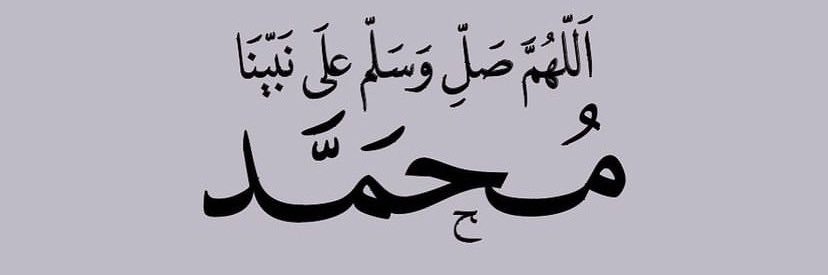 اَللّٰهُمَّ صَلِّ وَسَلِّمْ عَلَى نَبِيِّنَا
مُحَمَّد